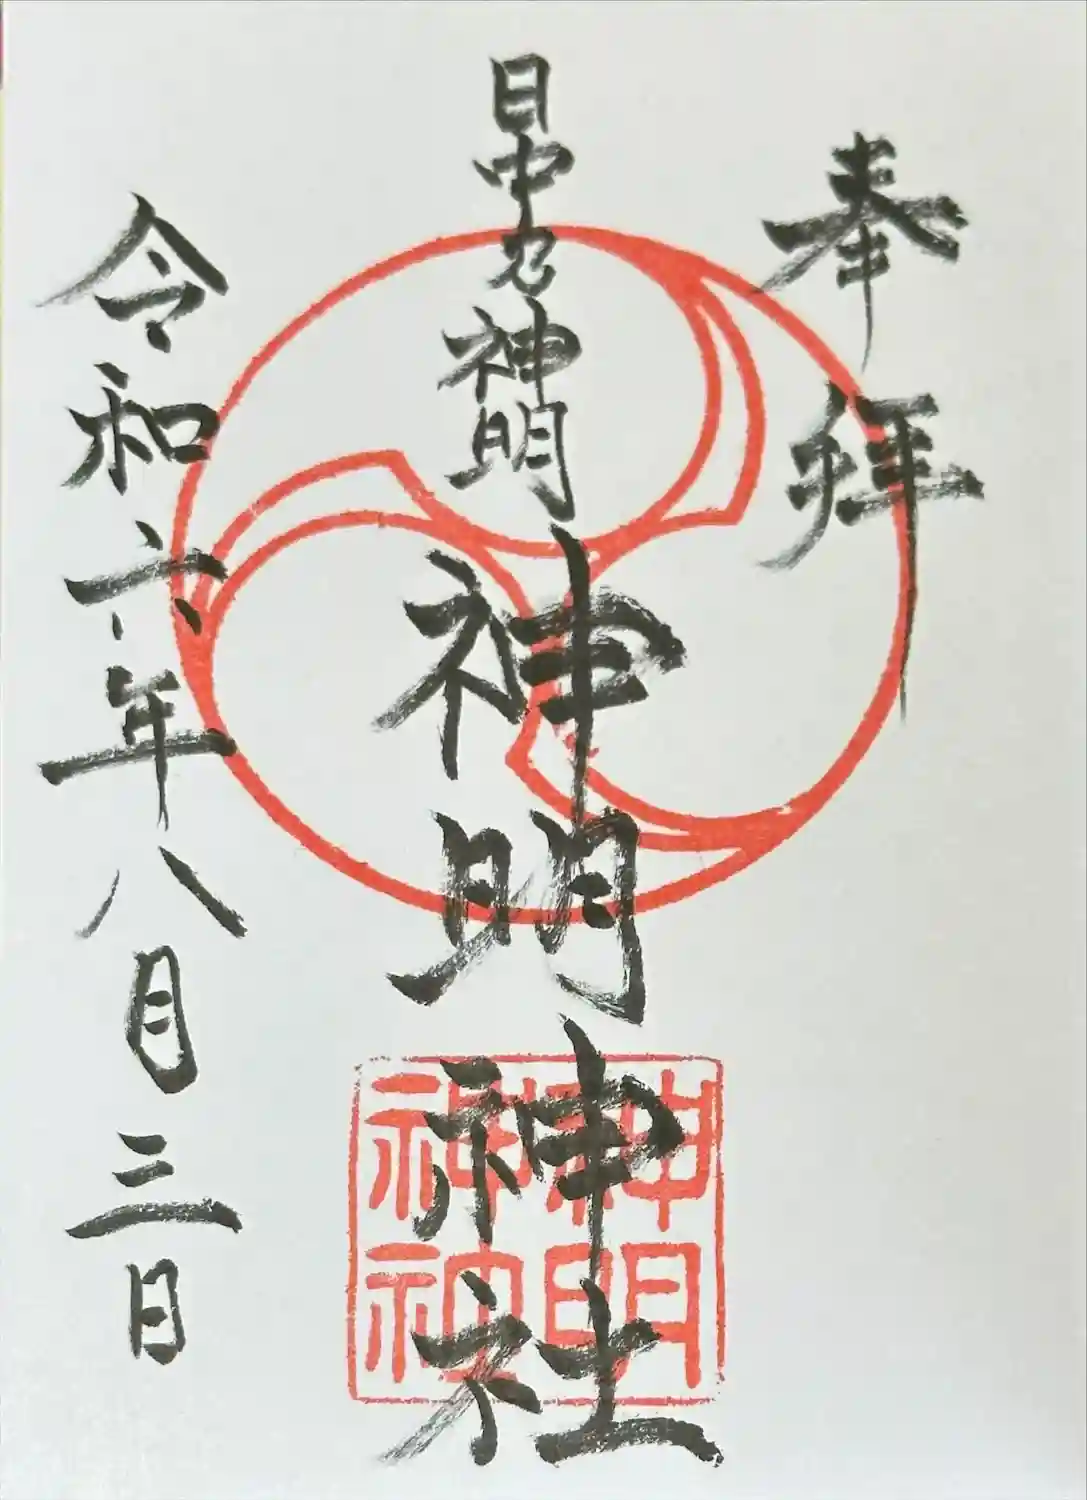 奉拝
日中乃神明
神明神社
神明
神社
令和六年八月三日